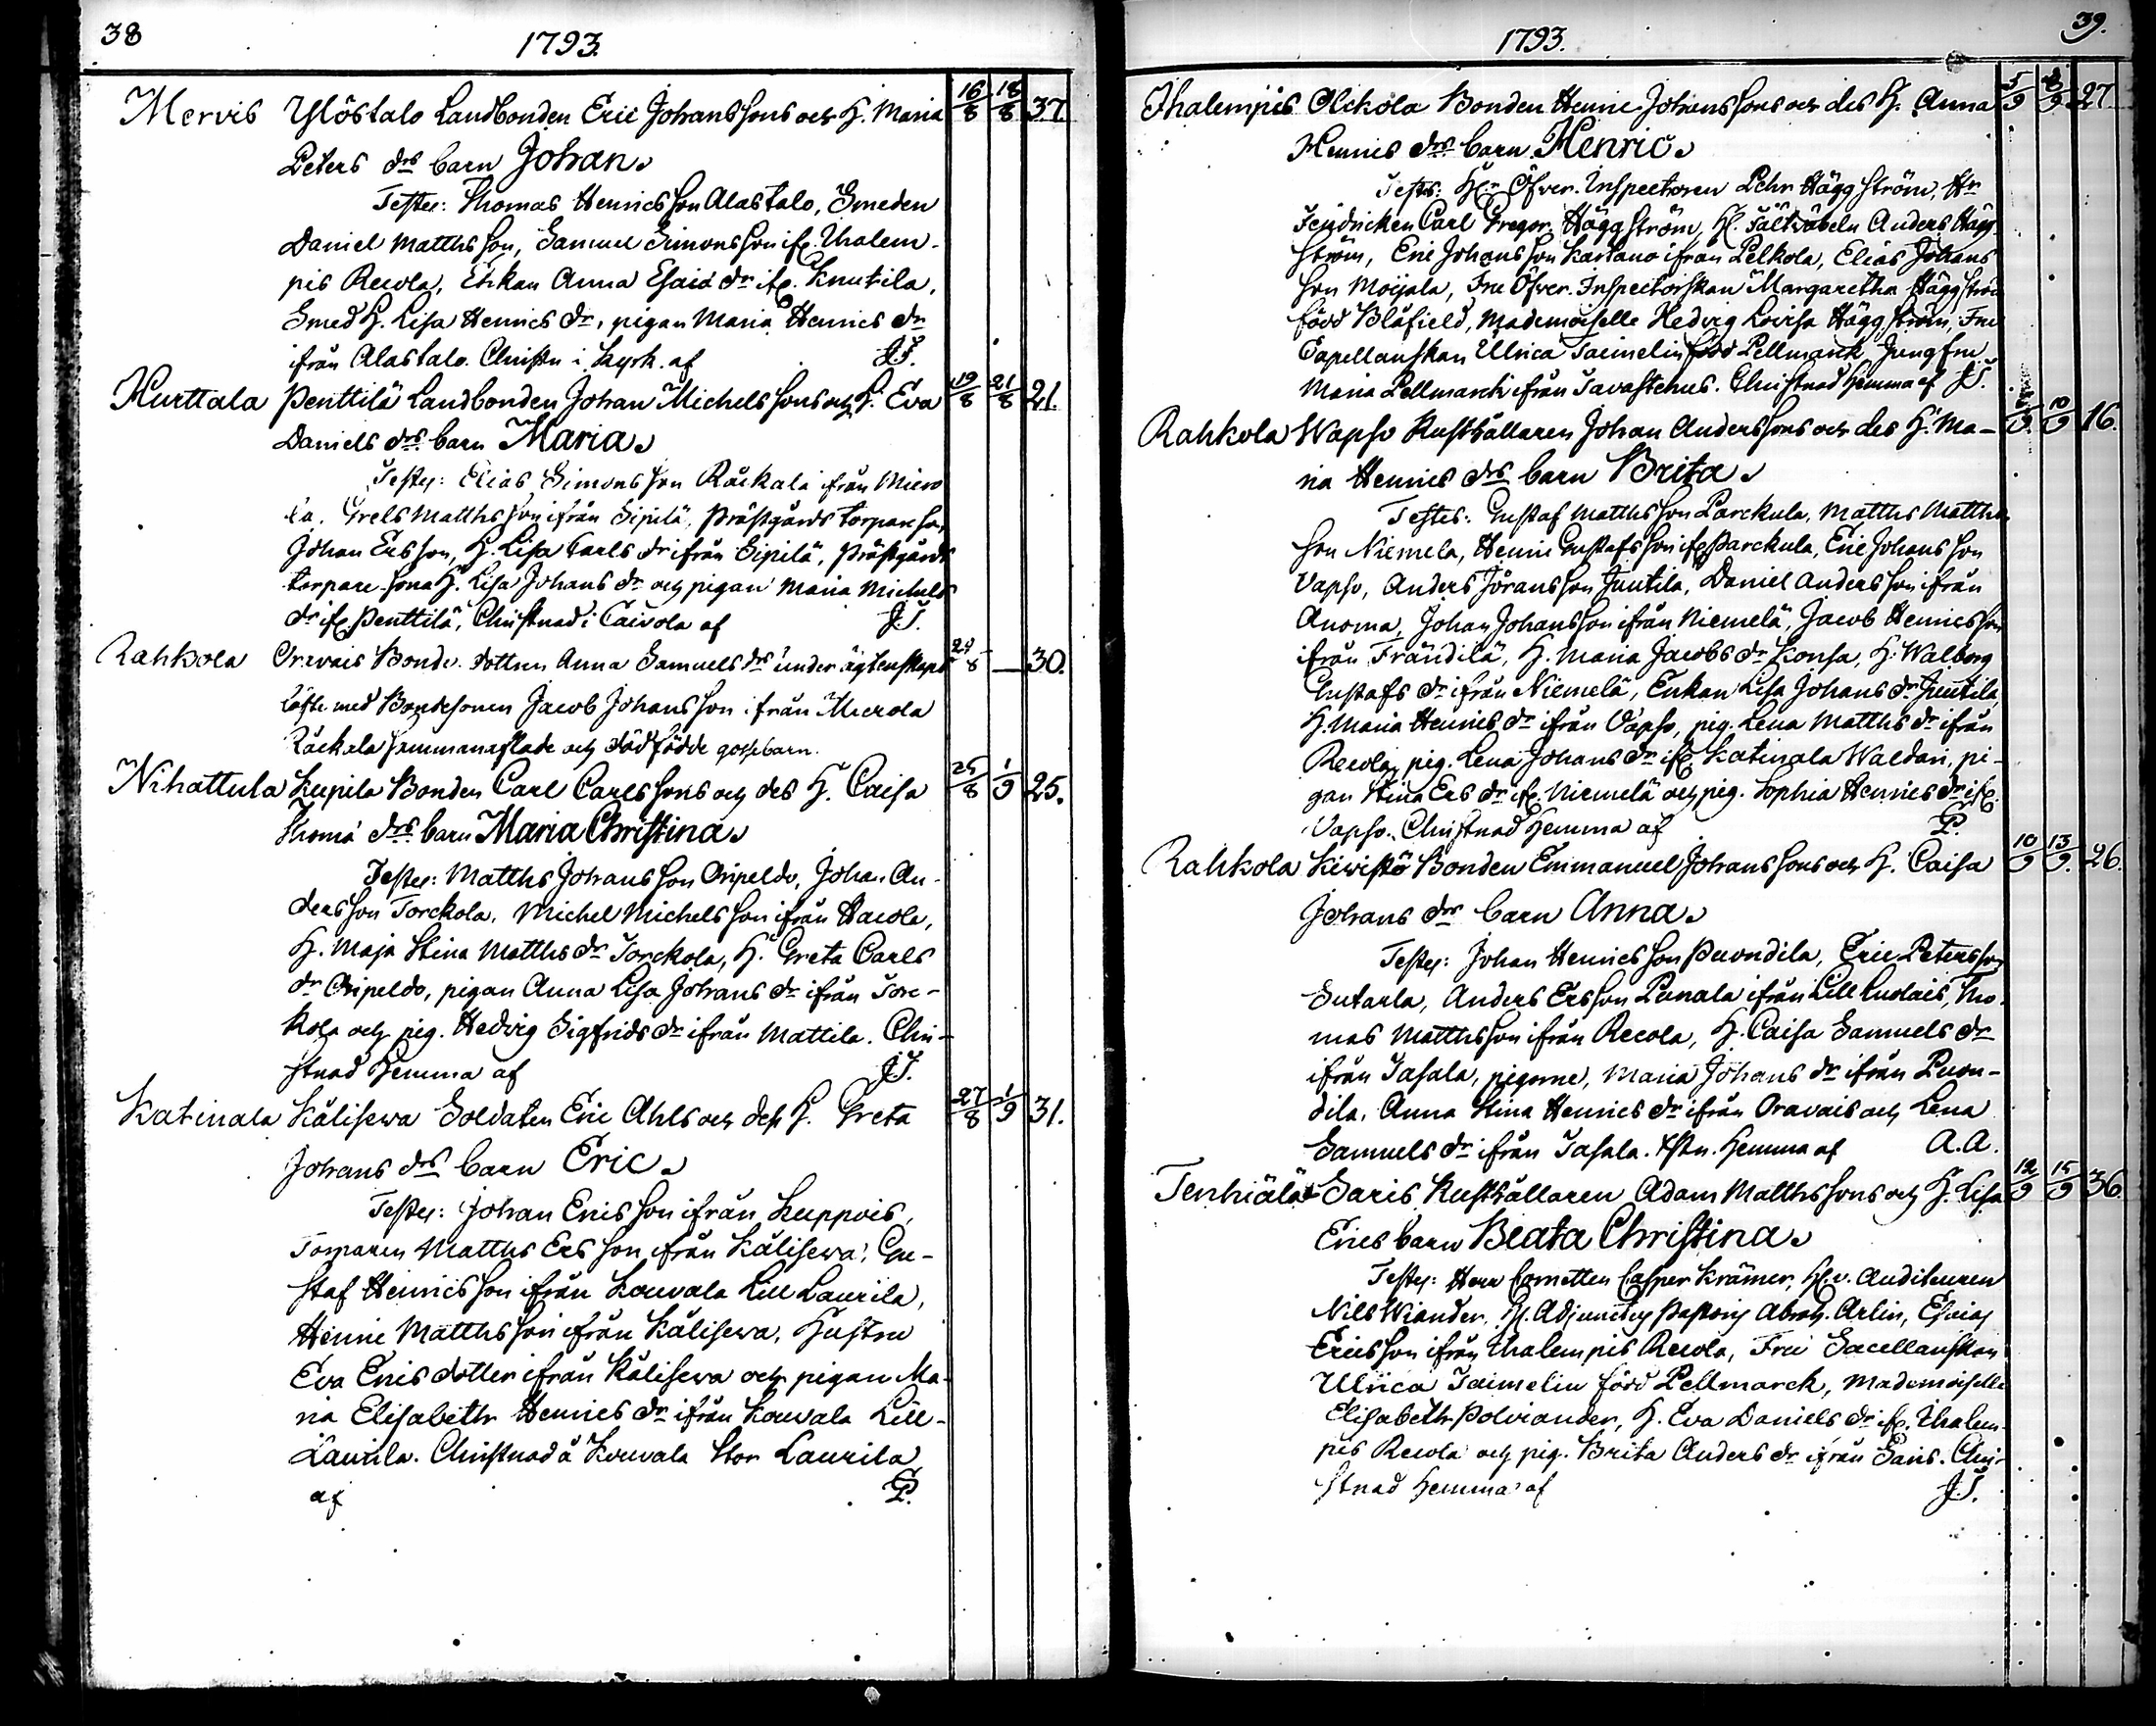 38
1793.
Mervis Ylöstalo Landbonden Eric Johanssons och H. Maria 16/8 18/8 37.
Peters drs barn Johan.
Testes: Thomas Henricsson Alastalo, Smeden
Daniel Matthsson, Samuel Simonsson ifr. Ihalem-
pis Recola, Enkan Anna Esaiæ dr ifr. Knutila,
Smed H. Lisa Henrics dr, pigan Maria Henrics dr
ifrån Alastalo. Christn i kyrk. af J.T.
Hurttala Penttilä Landbonden Johan Michelssons och H. Eva 19/8 21/8 21.
Daniels drs barn Maria.
Testes: Elias Simonsson Räikälä ifrån Miero
la. Grels Matthsson ifrån Sipilä, Prästgårds torpare son
Johan Ersson, H. Lisa Carls dr ifrån Sipilä, Prästgårds
torpare sons H. Lisa Johans dr och pigan Maria Michels
dr ifr. Penttilä, Christnad i Caivola af J.T.
Rahkola Oravais Bonde dottren Anna Samuels drs under ägtenskaps 24/8 — 30.
löfte med Bondesonen Jacob Johansson ifrån Mierola
Räikälä sammanaflade och dödfödde gossebarn.
Nihattula Kupila Bonden Carl Carlssons och des H. Caisa 25/8 1/9 25.
Thomæ drs barn Maria Christina.
Testes: Matths Johansson Anipeldo, Johan An-
dersson Torckola, Michel Michelsson ifrån Hacola,
H. Maja Stina Matths dr Torckola, H. Greta Carls
dr Anipeldo, pigan Anna Lisa Johans dr ifrån Torc-
kola och pig. Hedvig Sigfrids dr ifrån Mattila. Chri-
stnad hemma af J.T.
Katinala Kälisewa Soldaten Eric Ahls och dess H. Greta 27/8 1/9 31.
Johans drs barn Eric.
Testes: Johan Ericsson ifrån Luppois,
Torparen Matths Ersson ifrån Kälisewa, Gu-
staf Henricsson ifrån Kouvala Lill Laurila,
Henric Matthsson ifrån Kälisewa, Hustru
Eva Erics dotter ifrån Kälisewa och pigan Ma-
ria Elisabeth Henrics dr ifrån Kouvala Lill-
Laurila. Christnad å Kouvala Stor Laurila
af P.
39.
1793.
Ihalempis Olckola Bonden Henric Johanssons och des H. Anna 5/9 8/9 27
Henrics drs barn Henric.
Testes: Hr. Öfver-Inspectoren Pehr Häggström, Hr
Fendricken Carl Gregor. Häggström, H. Fältväbeln Anders Hägg-
ström, Eric Johansson Kartano ifrån Pelkola, Elias Johans
son Moijala, Fru Öfver-Inspectorskan Margaretha Häggström
född Blåfield, Mademoiselle Hedvig Lovisa Häggström, Fru
Capellanskan Ulrica Taimelin född Pellmarck Jungfru
Maria Pellmarck ifrån Tavastehus. Christnad hemma af J.T.
Rahkola Wapso Rusthållaren Johan Anderssons och des H. Ma- /9 10/9 16.
ria Henrics drs barn Brita.
Testes: Gustaf Matthsson Parckula, Matths Matths
son Niemelä, Henric Gustafsson ifr Parckula, Eric Johansson
Vapso, Anders Jöransson Juutila, Daniel Andersson ifrån
Anoma, Johan Johansson ifrån Niemelä, Jacob Henricsson
ifrån Frändilä, H. Maria Jacobs dr Konsa, H. Walborg
Gustafs dr ifrån Niemelä, Enkan Lisa Johans dr Juutila,
H. Maria Henrics dr ifrån Vapso, pig. Lena Matths dr ifrån
Recola, pig. Lena Johans dr ifr. Katinala Waldari, pi-
gan Stina Ers dr ifr. Niemelä och pig. Sophia Henrics dr ifr.
Vapso. Christnad hemma af P.
Rahkola Kiwistö Bonden Emmanuel Johanssons och H. Caisa 10/9 13/9 26.
Johans drs barn Anna.
Testes: Johan Henricsson Puondila, Eric Petersson
Sutarla, Anders Ersson Punala ifrån Lill Luolais, Tho-
mas Matthsson ifrån Recola, H. Caisa Samuels dr
ifrån Jasala, pigorne, Maria Johans dr ifrån Puon-
dila, Anna Stina Henrics dr ifrån Oravais och Lena
Samuels dr ifrån Jasala. Xstn. hemma af A.A.
Tenhiälä Saris Rusthållaren Adam Matthssons och H. Lisa 12/9 15/9 36.
Erics barn Beata Christina.
Testes: Herr Cornetten Casper Krämer, H. v. Auditeuren
Nils Wiander, H. Adjuncten Pastoris Abrah. Arlin, Esaias
Ericsson ifrån Ihalempis Recola, Fru Sacellanskan
Ulrica Taimelin född Pellmarck, Mademoiselle
Elisabeth Polviander, H. Eva Daniels dr ifr. Ihalem-
pis Recola och pig. Brita Anders dr ifrån Saris. Chri-
stnad hemma af J.T.